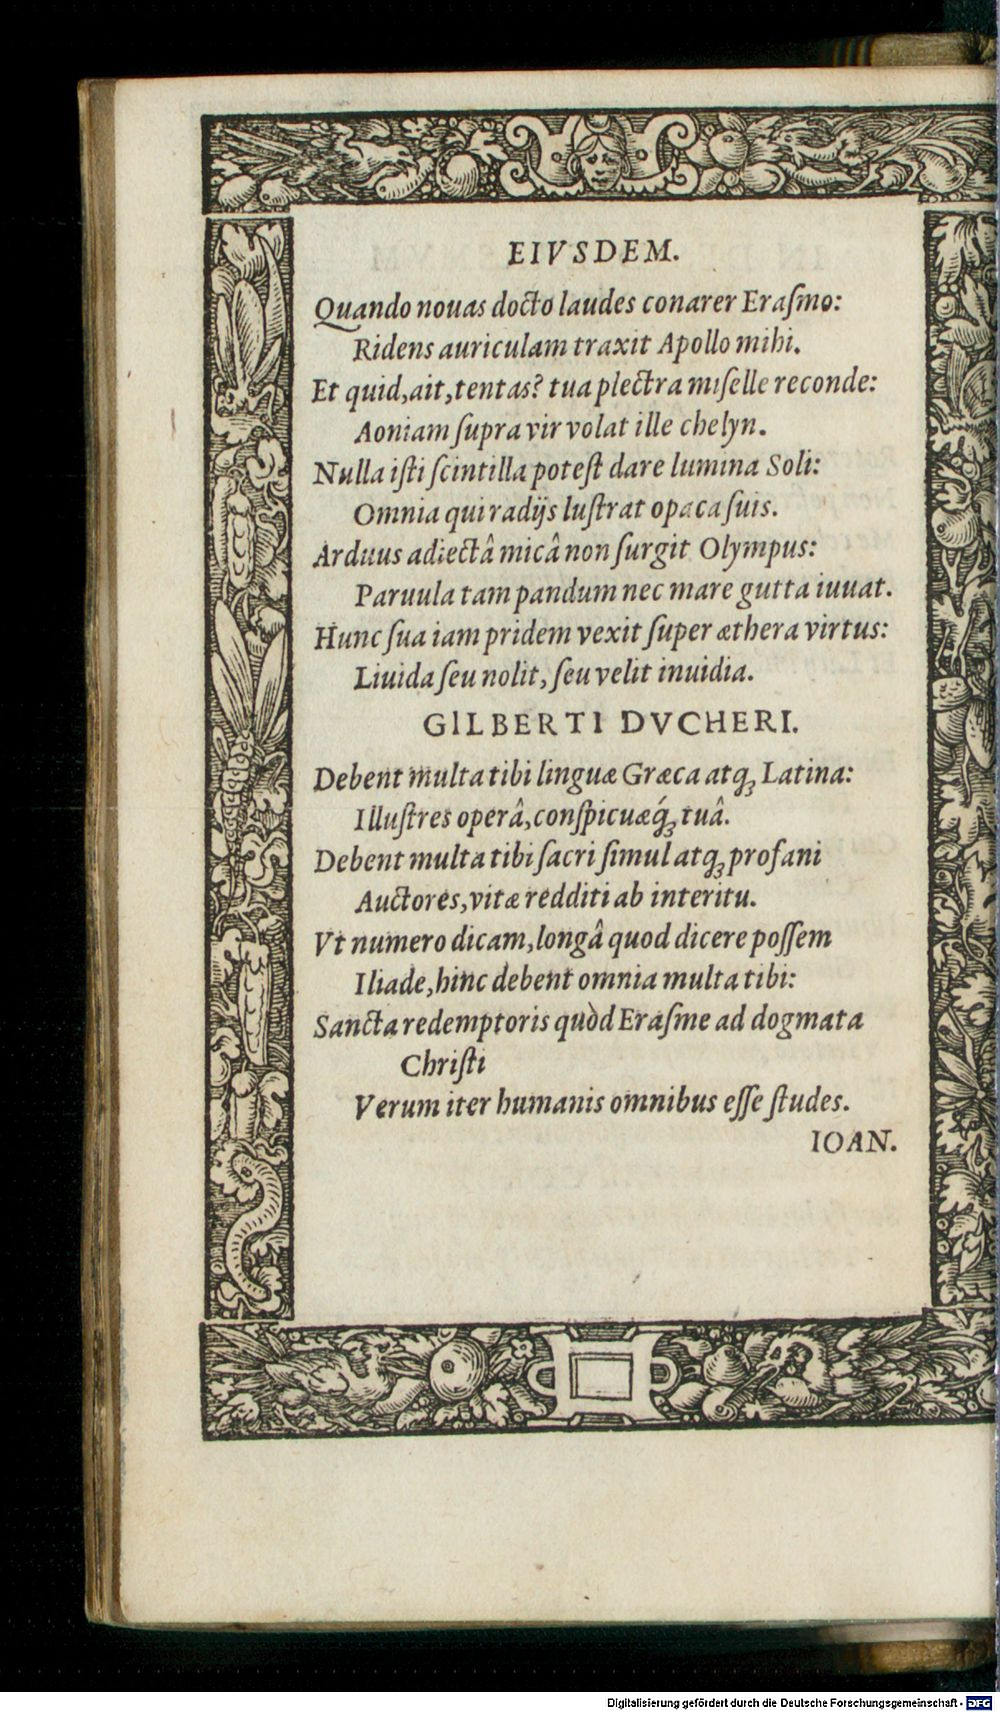 EIVSDEM.
Quando nouas docto laudes conarer Eraſmo:
Ridens auriculam traxit Apollo mihi.
Et quid, ait, tentas? tua plectra miſelle reconde:
Aoniam ſupra vir volat ille chelyn.
Nulla iſti ſcintilla poteſt dare lumina Soli:
Omnia qui radijs luſtrat opaca ſuis.
Arduus adiectâ micâ non ſurgit Olympus:
Paruula tam pandum nec mare gutta iuuat.
Hunc ſua iam pridem vexit ſuper æthera virtus:
Liuida ſeu nolit, ſeu velit inuidia.
GILBERTI DVCHERI.
Debent multa tibi linguæ Græca atq; Latina:
Illuſtres operâ, conſpicuæq́; tuâ.
Debent multa tibi ſacri ſimul atq; profani
Auctores, vitæ redditi ab interitu.
Vt numero dicam, longâ quod dicere poſſem
Iliade, hinc debent omnia multa tibi:
Sancta redemptoris quòd Eraſme ad dogmata
Chriſti
Verum iter humanis omnibus eſſe ſtudes.
IOAN.
Digitalisierung gefördert durch die Deutsche Forschungsgemeinschaft - DFG